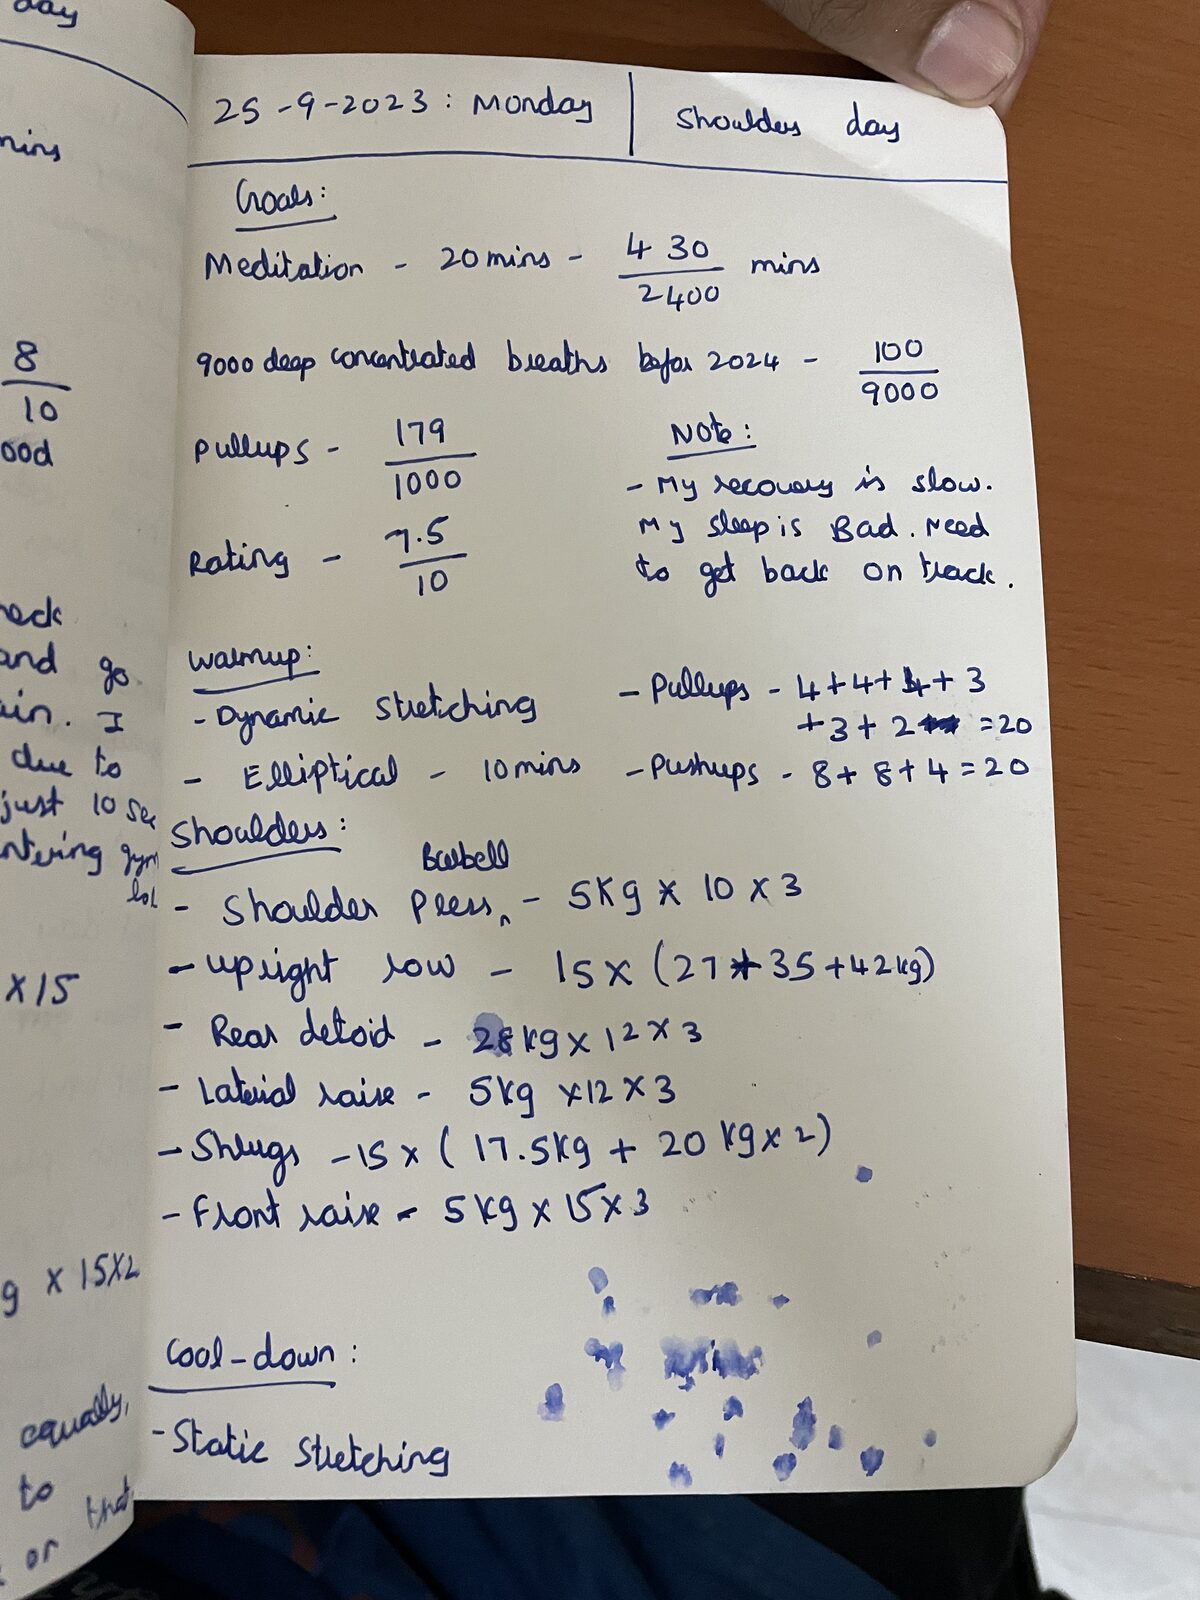 day
mins
8
10
ood
neck
and go
ain. I
due to
just 10 sec
ntering gym
lol
x 15
g x 15x2
equally,
to
or that
25-9-2023: Monday | Shoulders day
Goals:
Meditation - 20 mins - 430/2400 mins
9000 deep concentrated breaths befor 2024 - 100/9000
Pullups - 179/1000
Rating - 7.5/10
Note:
- My recovery is slow.
My sleep is Bad. Need
to get back on track.
Warmup:
- Dynamic stretching
- Elliptical - 10 mins
- Pullups - 4+4+4+3
+3+2 =20
- Pushups - 8+8+4=20
Shoulders:
Barbell
- Shoulder Press - 5Kg x 10 x 3
- upright row - 15 x (27+35+42kg)
- Rear detoid - 28kg x 12 x 3
- Laterial raise - 5kg x12 x 3
- Shrugs - 15 x (17.5kg + 20 kg x 2)
- Front raise - 5kg x 15 x 3
Cool-down:
- Static stretching